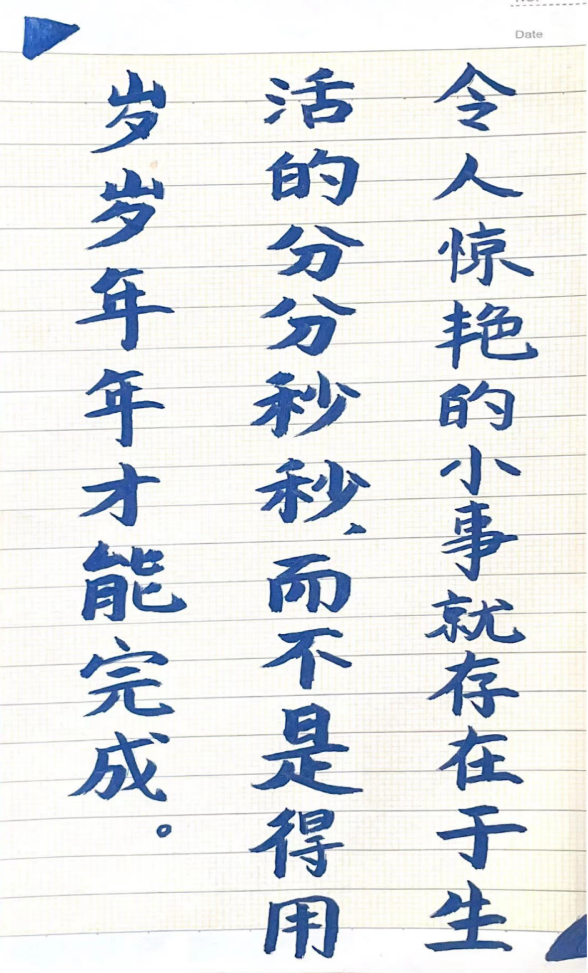 Date
令人惊艳的小事就存在于生
活的分分秒秒、而不是得用
岁岁年年才能完成。